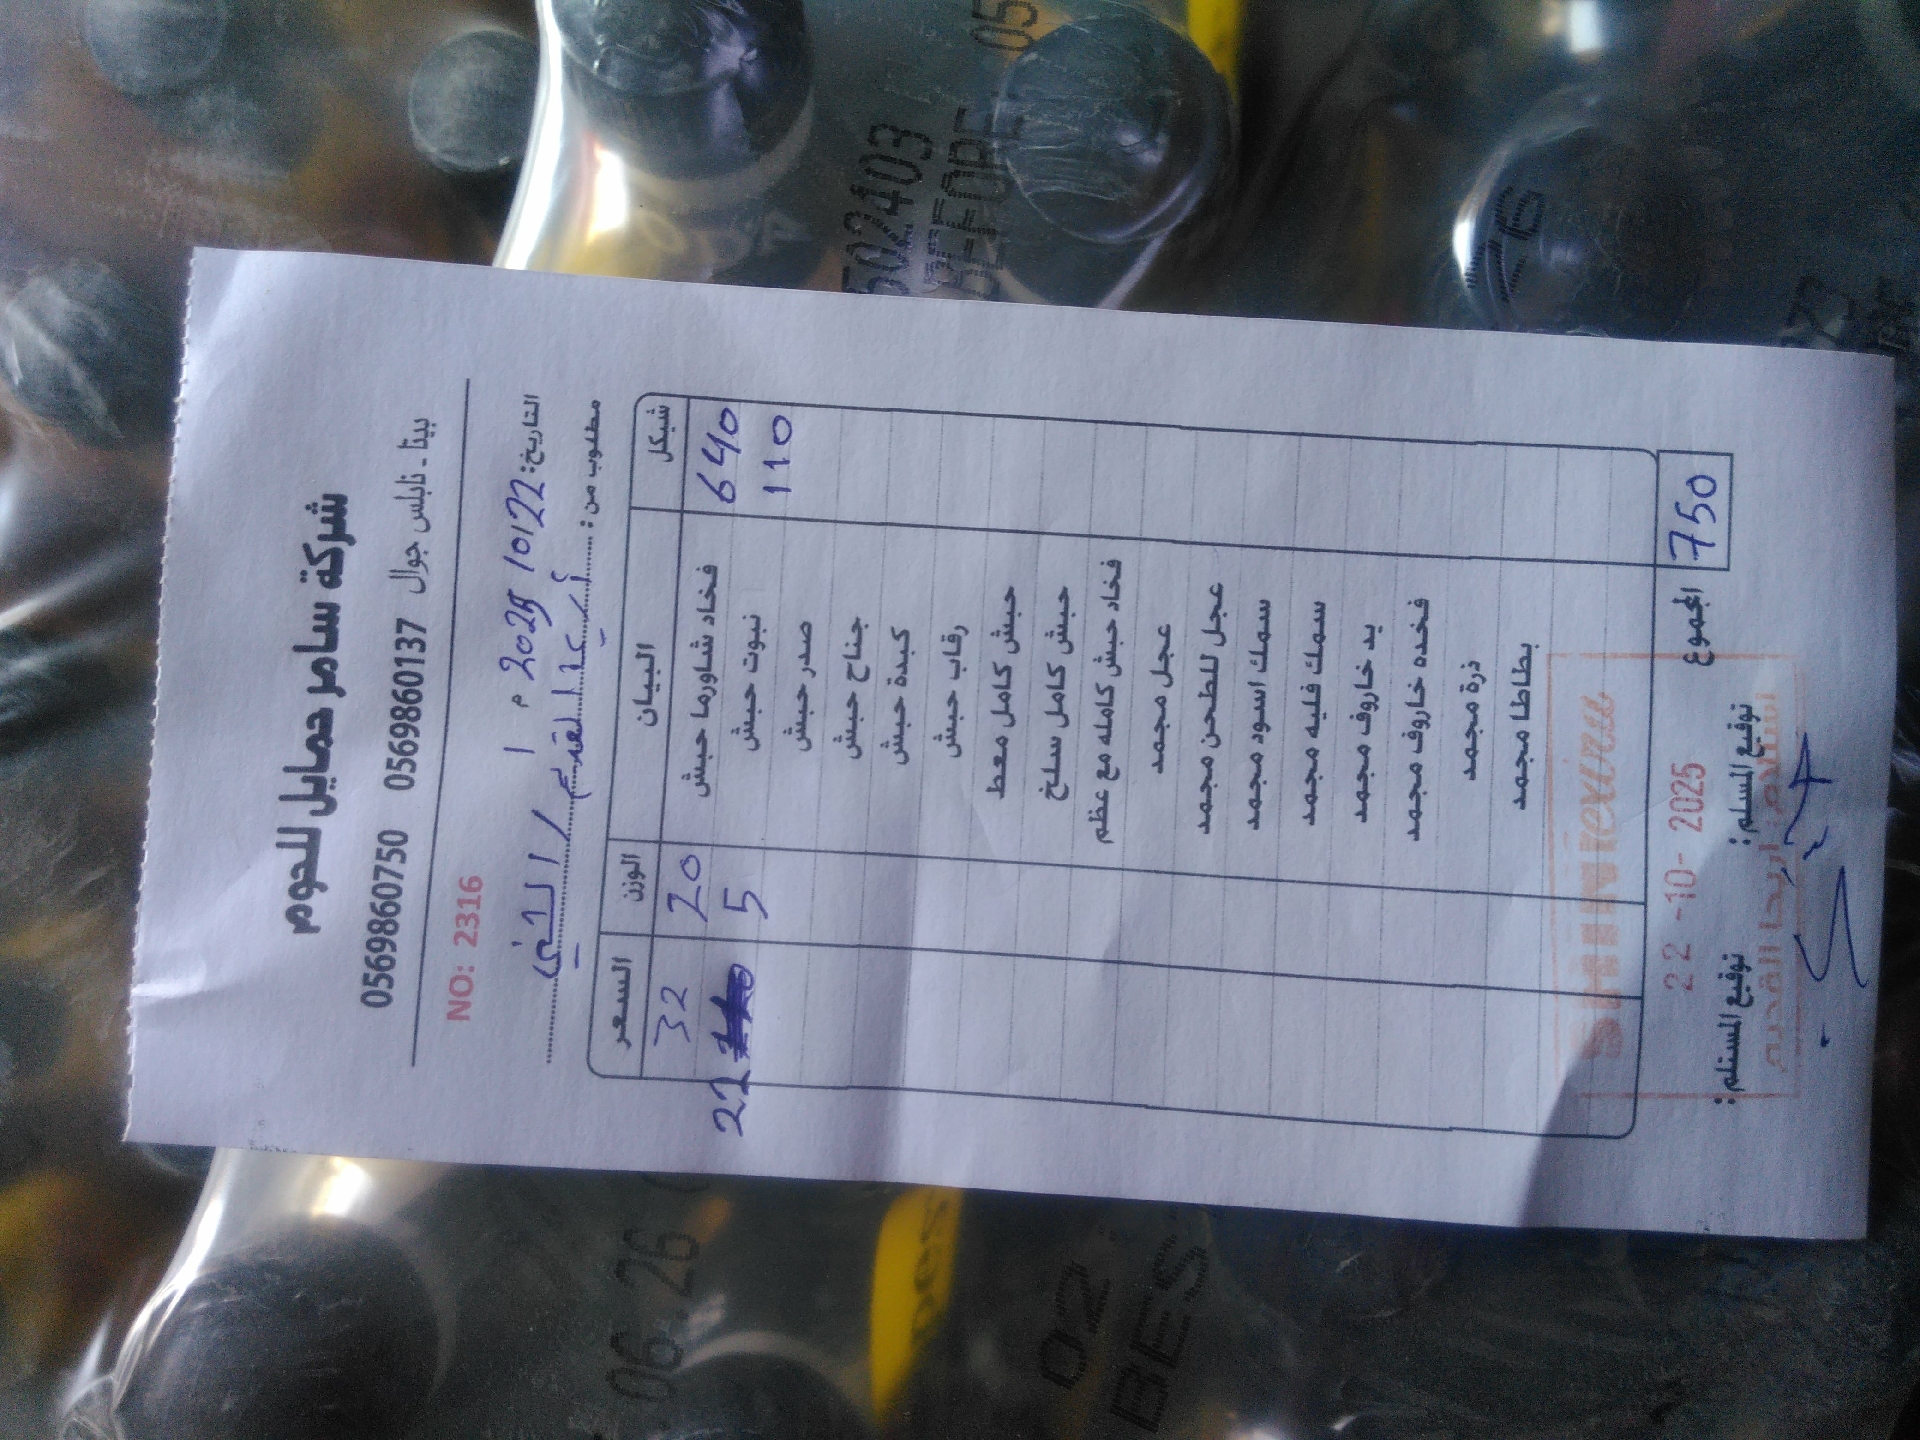 شركة سامر حمايل للحوم
بيتا - نابلس جوال 0569860137 0569860750
NO: 2316
التاريخ: 2025 / 10 / 22 م
مطلوب من: أريحا القديم /
السعر الوزن البيان شيكل
32 20 فخاد شاورما حبش 640
22 5 نبوت حبش 110
صدر حبش
جناح حبش
كبدة حبش
رقاب حبش
حبش كامل معط
حبش كامل سلخ
فخاد حبش كامله مع عظم
عجل مجمد
عجل للطحن مجمد
سمك اسود مجمد
سمك فليه مجمد
يد خاروف مجمد
فخده خاروف مجمد
ذرة مجمد
بطاطا مجمد
المجموع 750
22 -10- 2025
توقيع المسلم: توقيع المستلم:
استلام اريحا القديم
502403
BEFORE 05
06.26
02
BES